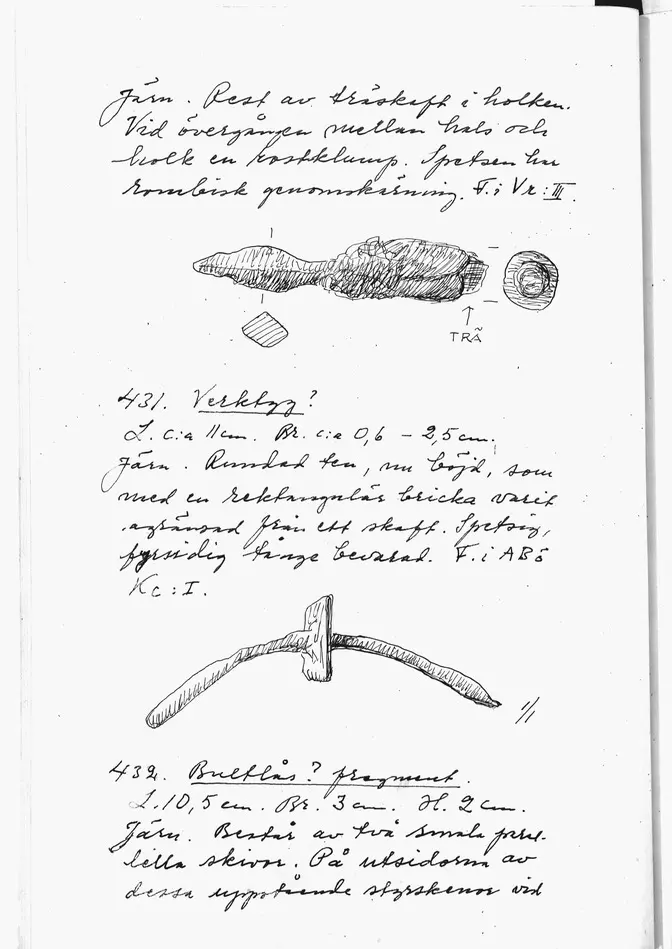 Järn. Rest av träskaft i holken.
Vid övergången mellan hals och
holk en rostklump. Spetsen har
rombisk genomskärning. F. i Vr: III.
TRÄ
431. Verktyg?
L. c:a 11 cm. Br. c:a 0,6 – 2,5 cm.
Järn. Rundad ten, nu böjd, som
med en rektangulär bricka varit
agränsad från ett skaft. Spetsig,
fyrsidig tånge bevarad. F. i ABö
Kc: I.
1/1
432. Bultlås? fragment.
L. 10,5 cm. Br. 3 cm. H. 2 cm.
Järn. Består av två smala paral-
lella skivor. På utsidorna av
dessa uppstående styrskenor vid